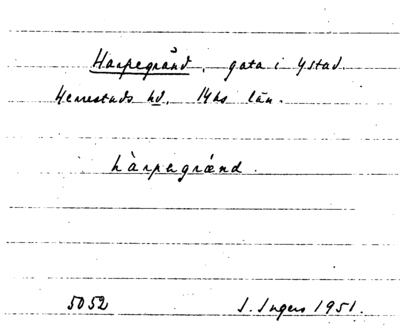 Harpegränd, gata i Ystad.
Herrestads hd, Mhs län.
hàrpegrænd.
5052 I. Ingers 1951.